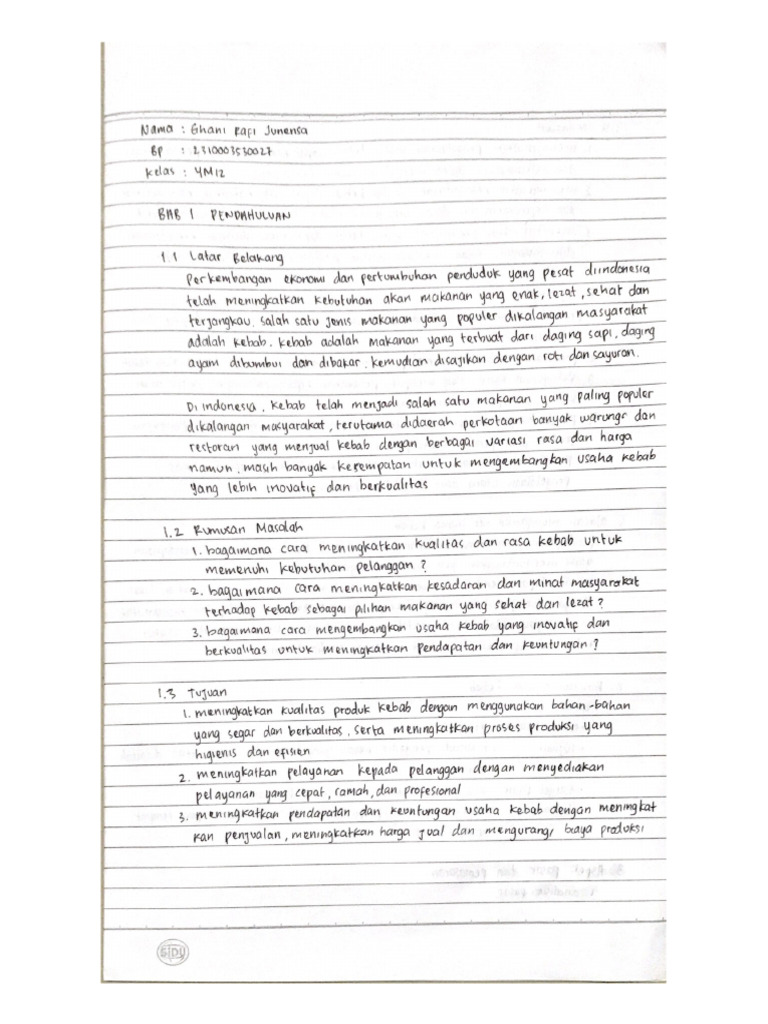 Nama : Ghani Rafi Junensa
BP : 2310003530027
Kelas : 4M12
BAB 1 PENDAHULUAN
1.1 Latar Belakang
Perkembangan ekonomi dan pertumbuhan penduduk yang pesat diindonesia
telah meningkatkan kebutuhan akan makanan yang enak, lezat, sehat dan
terjangkau. salah satu jenis makanan yang populer dikalangan masyarakat
adalah kebab. kebab adalah makanan yang terbuat dari daging sapi, daging
ayam dibumbui dan dibakar, kemudian disajikan dengan roti dan sayuran.
Di indonesia, kebab telah menjadi salah satu makanan yang paling populer
dikalangan masyarakat, terutama didaerah perkotaan banyak warungr dan
restoran yang menjual kebab dengan berbagai variasi rasa dan harga
namun, masih banyak kesempatan untuk mengembangkan usaha kebab
yang lebih inovatif dan berkualitas
1.2 Rumusan Masalah
1. bagaimana cara meningkatkan kualitas dan rasa kebab untuk
memenuhi kebutuhan pelanggan ?
2. bagaimana cara meningkatkan kesadaran dan minat masyarakat
terhadap kebab sebagai pilihan makanan yang sehat dan lezat ?
3. bagaimana cara mengembangkan usaha kebab yang inovatif dan
berkualitas untuk meningkatkan pendapatan dan keuntungan ?
1.3 Tujuan
1. meningkatkan kualitas produk kebab dengan menggunakan bahan-bahan
yang segar dan berkualitas, serta meningkatkan proses produksi yang
higienis dan efisien
2. meningkatkan pelayanan kepada pelanggan dengan menyediakan
pelayanan yang cepat, ramah, dan profesional
3. meningkatkan pendapatan dan keuntungan usaha kebab dengan meningkat
kan penjualan, meningkatkan harga jual dan mengurangi biaya produksi
SIDU